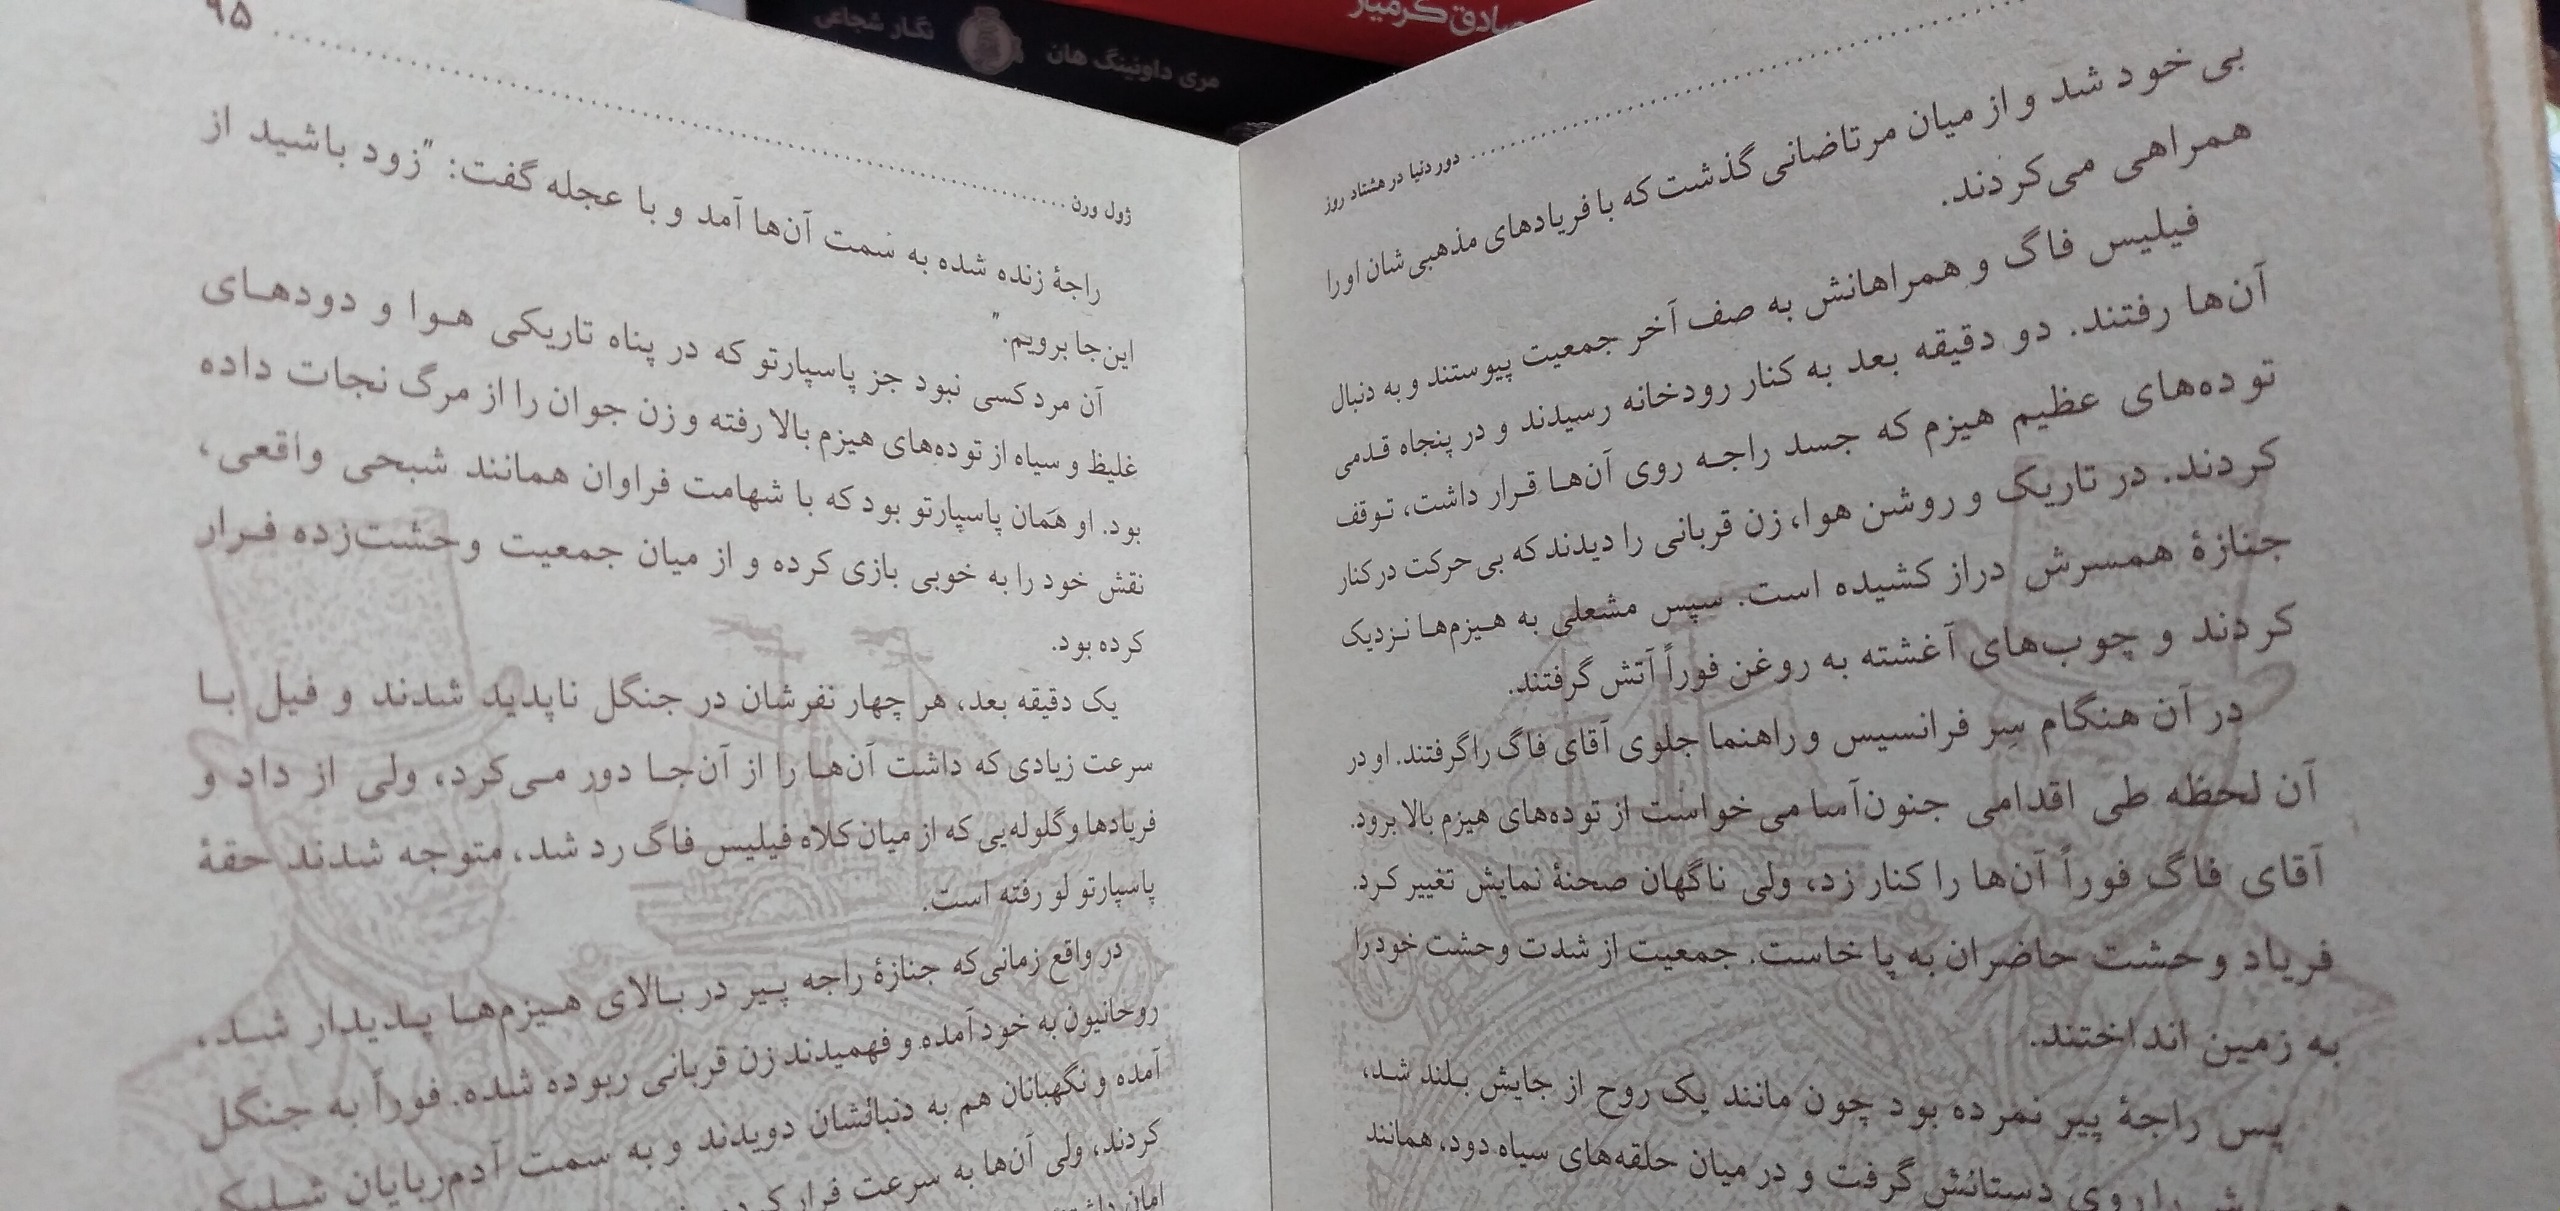 صادق کرمیار
مری داونینگ هان
نگار شجاعی
دور دنیا در هشتاد روز
بی خود شد و از میان مرتاضانی گذشت که با فریادهای مذهبی‌شان او را
همراهی می‌کردند.
فیلیس فاگ و همراهانش به صف آخر جمعیت پیوستند و به دنبال
آن‌ها رفتند. دو دقیقه بعد به کنار رودخانه رسیدند و در پنجاه قدمی
توده‌های عظیم هیزم که جسد راجه روی آن‌ها قرار داشت، توقف
کردند. در تاریک و روشن هوا، زن قربانی را دیدند که بی حرکت در کنار
جنازهٔ همسرش دراز کشیده است. سپس مشعلی به هیزم‌ها نزدیک
کردند و چوب‌های آغشته به روغن فوراً آتش گرفتند.
در آن هنگام سِر فرانسیس و راهنما جلوی آقای فاگ را گرفتند. او در
آن لحظه طی اقدامی جنون‌آسا می خواست از توده‌های هیزم بالا برود.
آقای فاگ فوراً آن‌ها را کنار زد، ولی ناگهان صحنهٔ نمایش تغییر کرد.
فریاد وحشت حاضران به پا خاست. جمعیت از شدت وحشت خود را
به زمین انداختند.
پس راجهٔ پیر نمرده بود چون مانند یک روح از جایش بلند شد،
را روی دستانش گرفت و در میان حلقه‌های سیاه دود، همانند
۹۵
ژول ورن
راجهٔ زنده شده به سمت آن‌ها آمد و با عجله گفت: "زود باشید از
این‌جا برویم."
آن مرد کسی نبود جز پاسپارتو که در پناه تاریکی هوا و دودهای
غلیظ و سیاه از توده‌های هیزم بالا رفته و زن جوان را از مرگ نجات داده
بود. او هَمان پاسپارتو بود که با شهامت فراوان همانند شبحی واقعی،
نقش خود را به خوبی بازی کرده و از میان جمعیت وحشت‌زده فرار
کرده بود.
یک دقیقه بعد، هر چهار نفرشان در جنگل ناپدید شدند و فیل با
سرعت زیادی که داشت آن‌ها را از آن‌جا دور می‌کرد، ولی از داد و
فریادها و گلوله‌یی که از میان کلاه فیلیس فاگ رد شد، متوجه شدند حقهٔ
پاسپارتو لو رفته است.
در واقع زمانی‌که جنازهٔ راجه پیر در بالای هیزم‌ها پدیدار شد،
روحانیون به خود آمده و فهمیدند زن قربانی ربوده شده. فوراً به جنگل
آمده و نگهبانان هم به دنبالشان دویدند و به سمت آدم‌ربایان شلیک
کردند، ولی آن‌ها به سرعت فرار کرده
امان